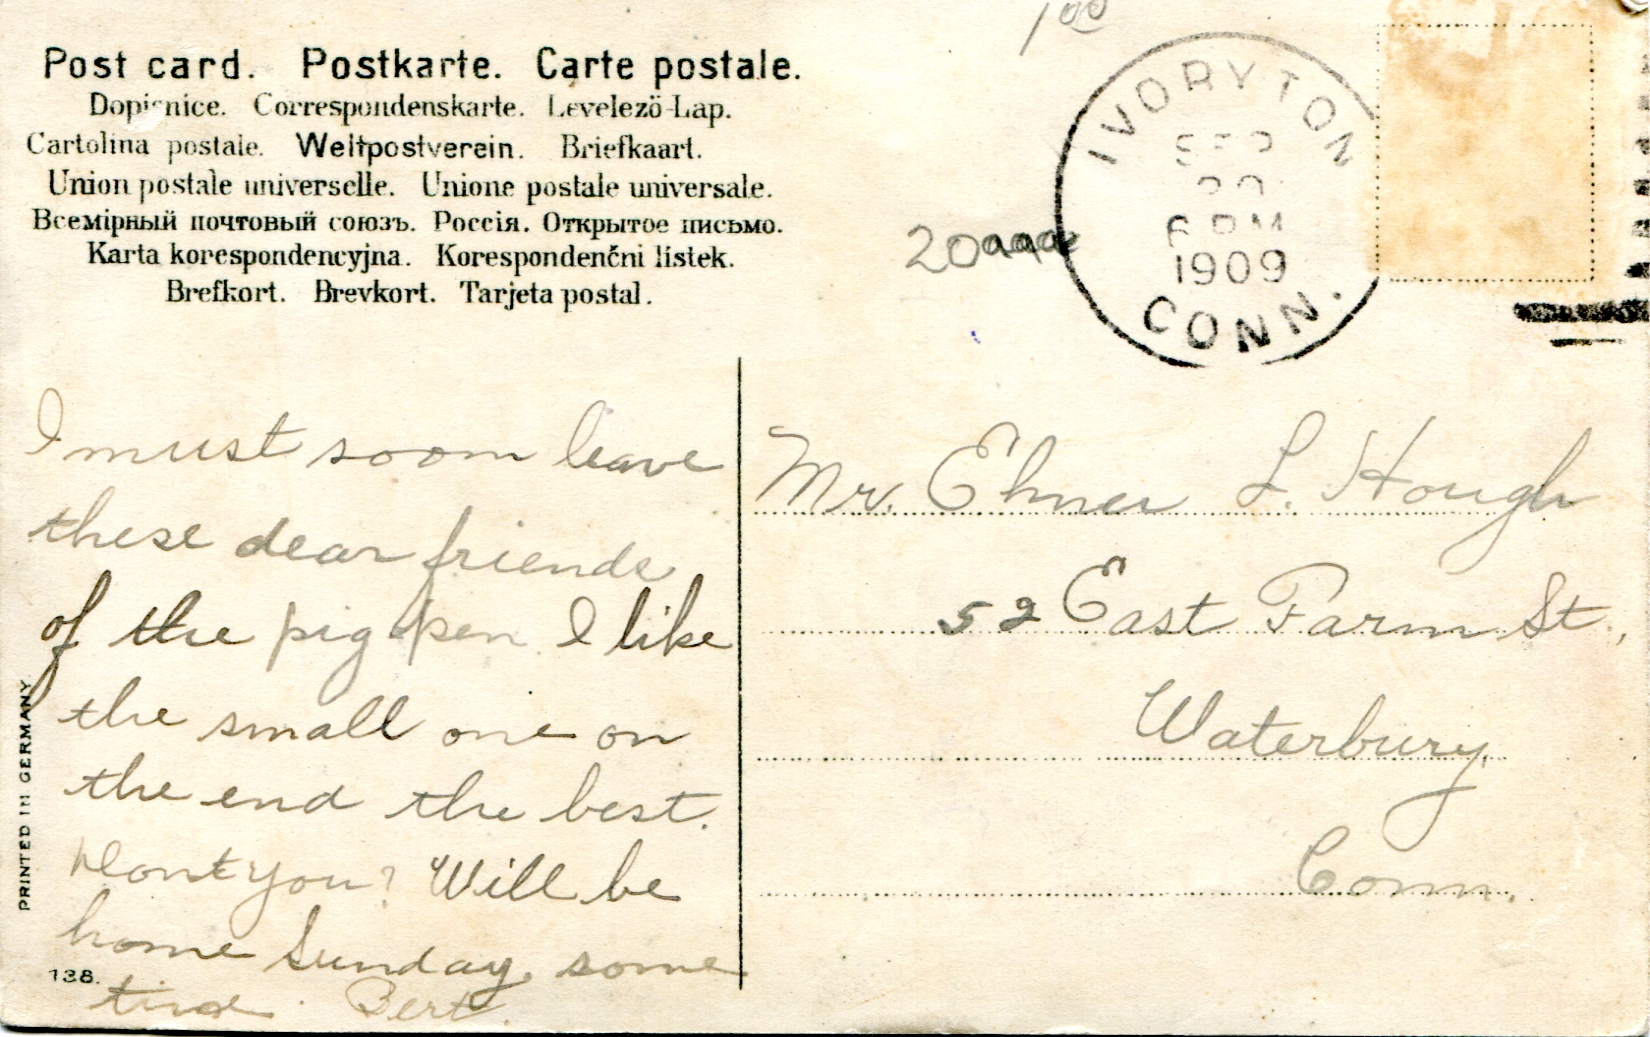 1 00
Post card. Postkarte. Carte postale.
Dopisnice. Correspondenskarte. Levelezö-Lap.
Cartolina postale. Weltpostverein. Briefkaart.
Union postale universelle. Unione postale universale.
Всемірный почтовый союзъ. Россія. Открытое письмо.
Karta korespondencyjna. Korespondenčni listek.
Brefkort. Brevkort. Tarjeta postal.
IVORYTON
SEP
6 PM
1909
CONN.
I must soon leave
these dear friends
of the pig pen I like
the small one on
the end the best.
Dont you? Will be
home Sunday, some
time. Bert.
Mr. Elmer L. Hough
52 East Farm St.,
Waterbury,
Conn.
PRINTED IN GERMANY
138.